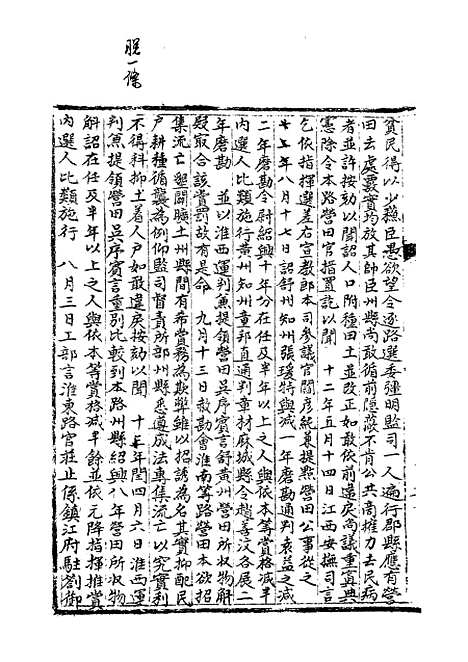 脫一條
貧民得以少穌臣愚欲望令逐路選委彊明監司一人遍行郡縣應有營
田去處覈實均放其帥臣州縣尚敢循前隱蔽不肯公共商搉力去民病
者並許按劾以聞詔人口附種田土並改正如敢依前違戾尚議重寘典
憲除令本路營田官指置訖以聞 十二年五月十四日江西安撫司言
乞依指揮選差右宣教郎本司參議官閻彥純兼提點營田公事從之
十五年八月十七日詔舒州知州張瑗特與減一年磨勘通判袁益之減
二年磨勘令尉紹興十年分在任及半年以上之人與依本等賞格減半
內選人比類施行黃州知州童邦直通判章材麻城縣令趙善汶各展二
年磨勘 並以淮西運判兼提領營田吳序賓言舒黃州營田所收物斛
殿取合該賞罰故有是命 九月十三日敕勘會淮南等路營田本欲招
集流亡墾闢曠土州縣間有希賞務為欺弊雖以招誘為名其實抑配民
戶耕種循襲為例仰監司督責所部州縣悉遵成法專集流亡以究實利
不得科抑土著人戶如敢違戾按劾以聞 十七年閏四月六日淮西運
判兼提領營田吳序賓言重別比較到本路州縣紹興八年營田所收物
斛詔在任及半年以上之人與依本等賞格減半餘並依元降指揮推賞
內選人比類施行 八月三日工部言淮東路官莊止係鎮江府駐劄御